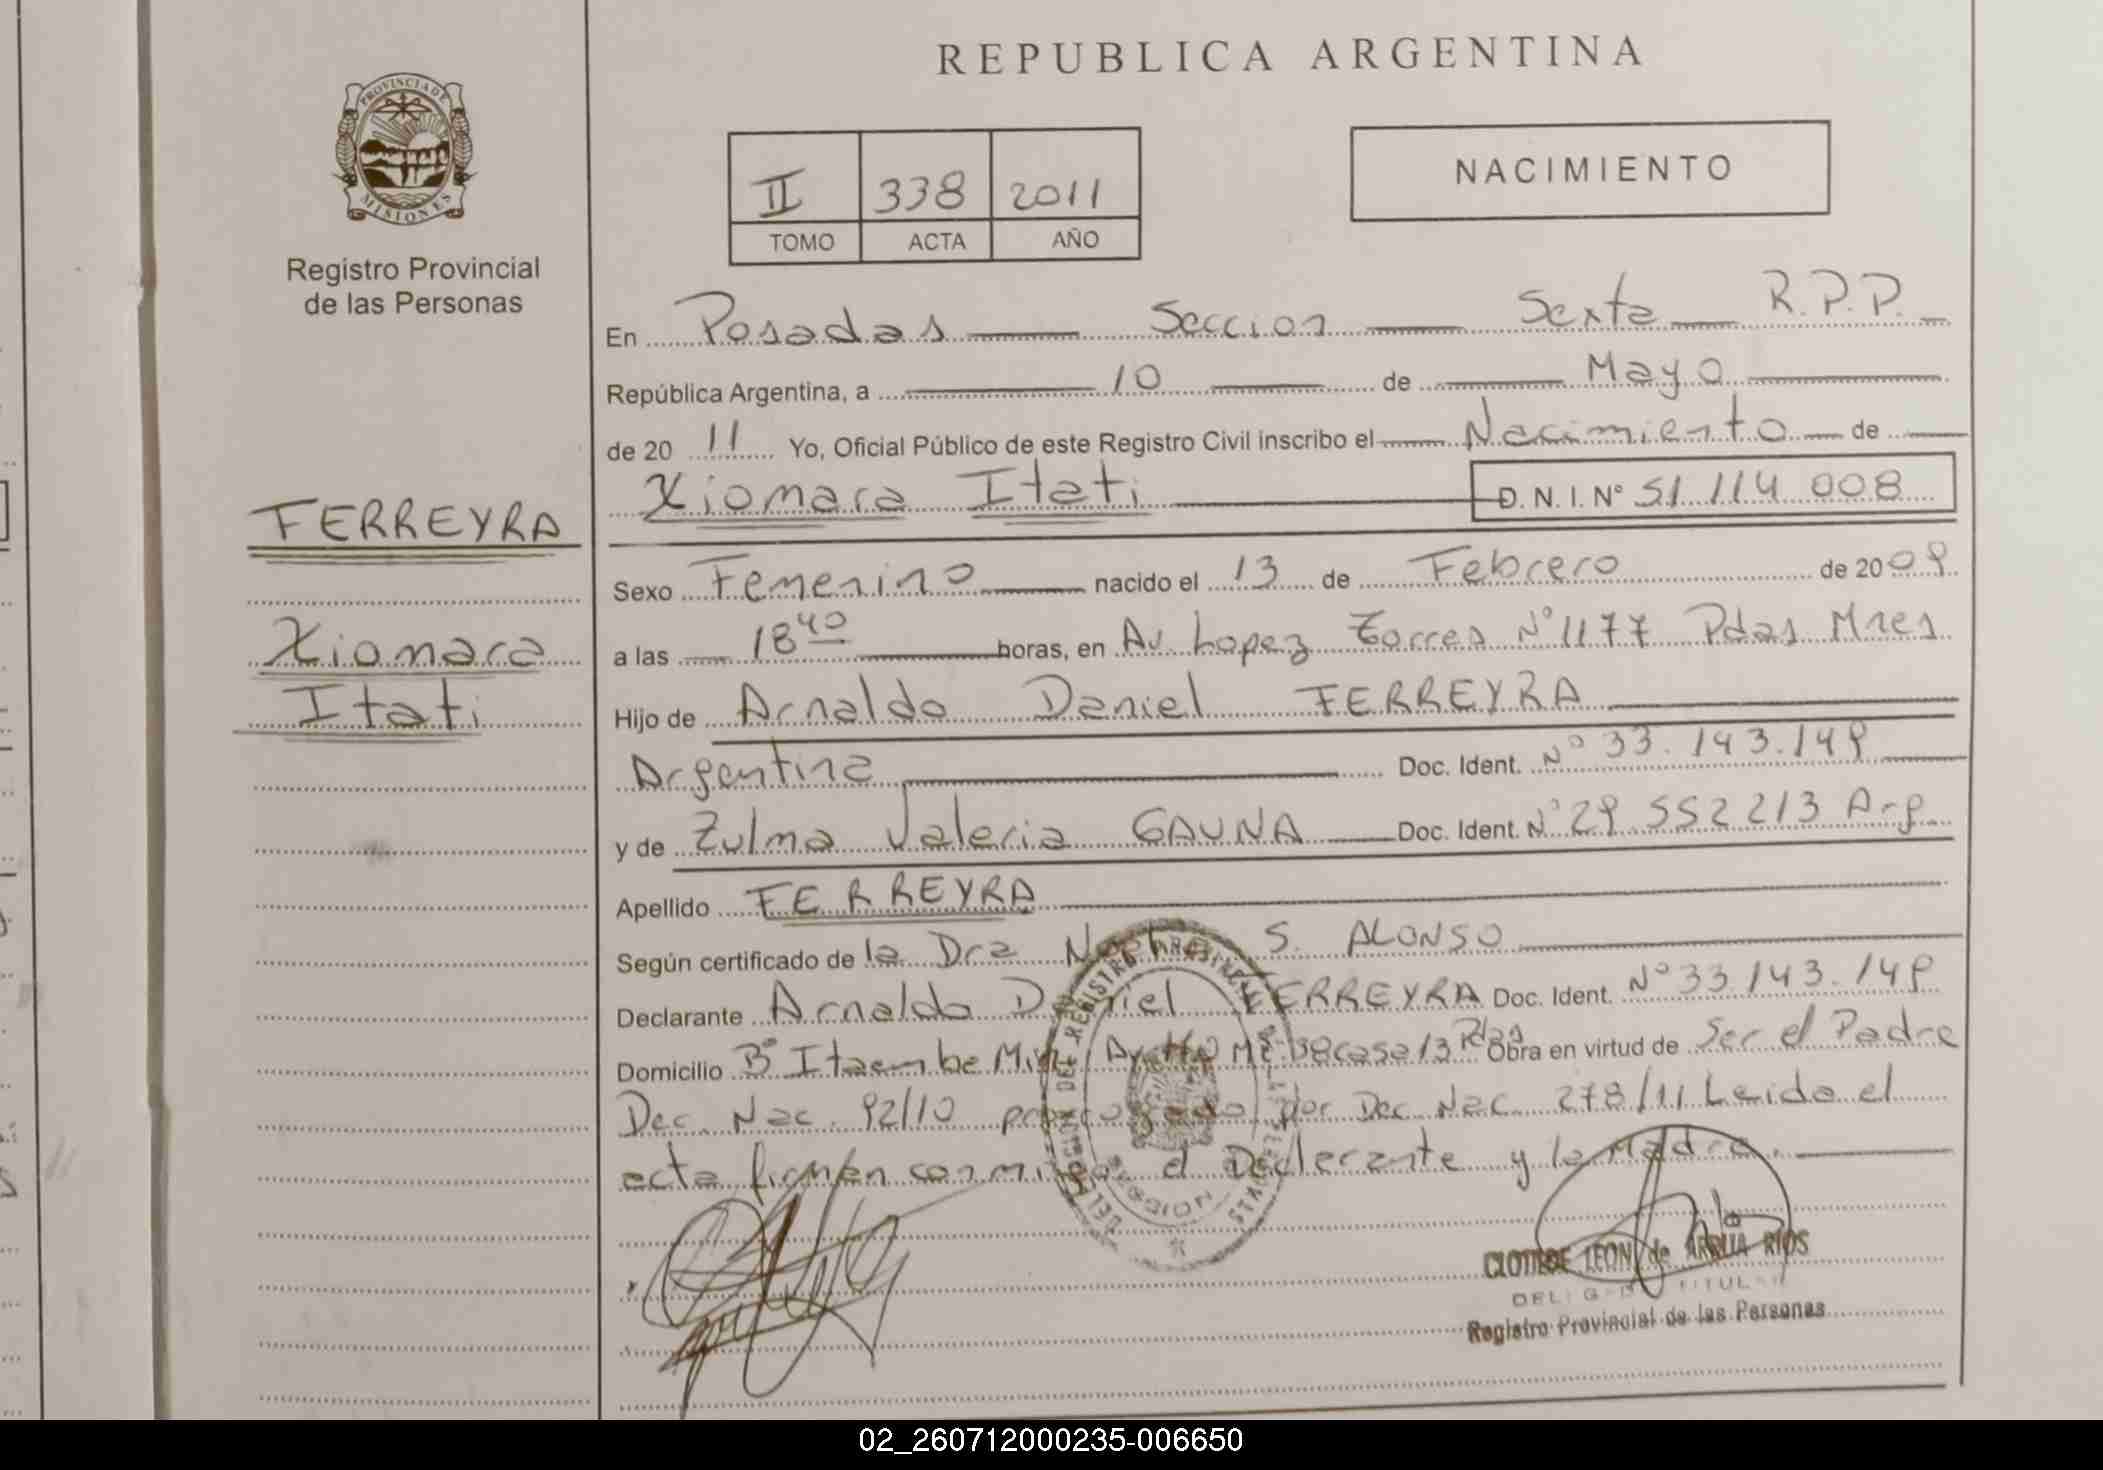 REPUBLICA ARGENTINA
PROVINCIA DE
MISIONES
Registro Provincial
de las Personas
II 338 2011
TOMO ACTA AÑO
NACIMIENTO
En Posadas Seccion Sexta R.P.P.
República Argentina, a 10 de Mayo
de 20 11 Yo, Oficial Público de este Registro Civil inscribo el Nacimiento de
Xiomara Itati D. N. I. N° 51.114 008
FERREYRA
Xiomara
Itati
Sexo Femenino nacido el 13 de Febrero de 2009
a las 18 40 horas, en Av Lopez Torres N° 1177 Pdas Mnes
Hijo de Arnaldo Daniel FERREYRA
Argentina Doc. Ident. N° 33.143.149
y de Zulma Valeria GAUNA Doc. Ident. N° 29 552 213 Arg
Apellido FERREYRA
Según certificado de la Dra S. ALONSO
Declarante Arnaldo Daniel FERREYRA Doc. Ident. N° 33 143.149
Domicilio B° Itaembe casa 13 Pdas Obra en virtud de Ser el Padre
Dec. Nac. 92/10 prorrogado por Dec Nac 278/11 Leido el
acta firman conmigo el Declarante y la Madre.
CLOTILDE LEON de ARRUA RIOS
Registro Provincial de las Personas
02_260712000235-006650